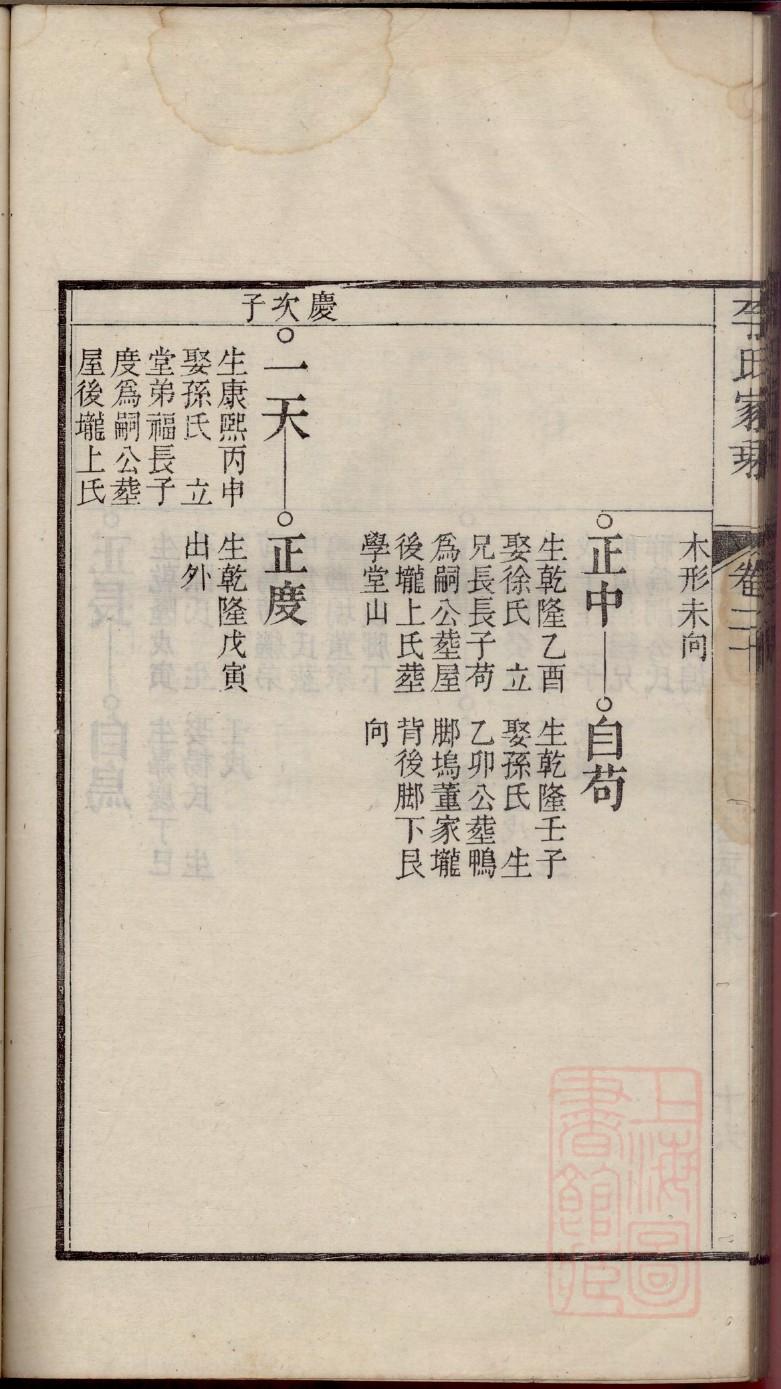 李氏家乘
卷二十
木形未向
正中
生乾隆乙酉
娶徐氏　立
兄長長子苟
爲嗣公塟屋
後壠上氏塟
學堂山
自苟
生乾隆壬子
娶孫氏　生
乙卯公塟鴨
脚塢董家壠
背後脚下艮
向
慶次子
一天
生康熙丙申
娶孫氏　立
堂弟福長子
度爲嗣公塟
屋後壠上氏
正度
生乾隆戊寅
出外
上海圖書館藏